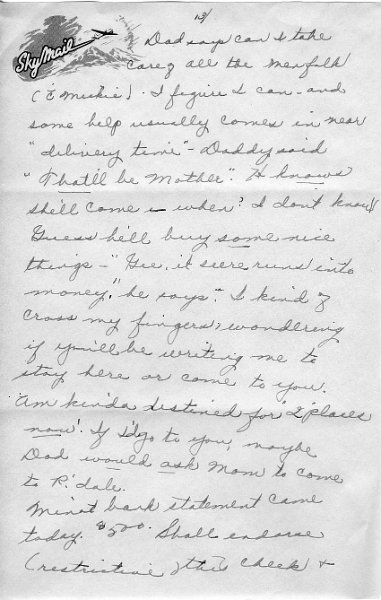 13/
Sky Mail
Dad says can I take
care of all the menfolk
(& Mickie). I figure I can - and
some help usually comes in near
"delivery time" - Daddy said
"That'll be Mother". He knows
she'll come - when? I don't know!
Guess he'll buy some nice
things - "Gee, it sure runs into
money," he says. I kind of
cross my fingers, wondering
if you'll be writing me to
stay here or come to you.
Am kinda destined for "2" places
now! If I'd go to you, maybe
Dad would ask Mom to come
to R.dale.
Minot bank statement came
today. $500. Shall endorse
(restrictive) this check +